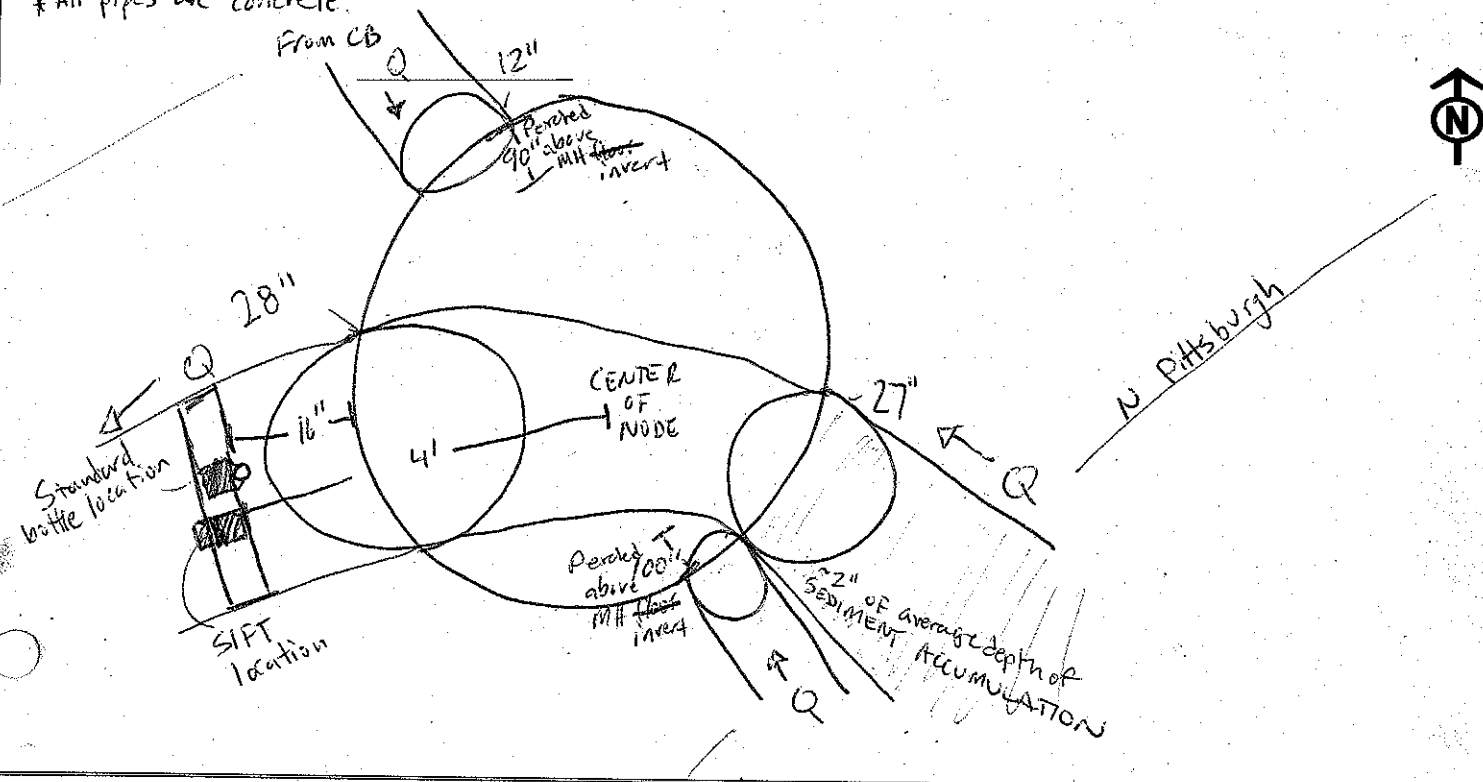 * All pipes are concrete.
From CB
Q
12"
Perched
90" above
MH floor
invert
N
28"
Q
16"
4'
CENTER
OF
NODE
27"
Q
N Pittsburgh
Standard
bottle location
SIFT
location
Perched
100"
above
MH floor
invert
~2" of average depth of
SEDIMENT ACCUMULATION
Q